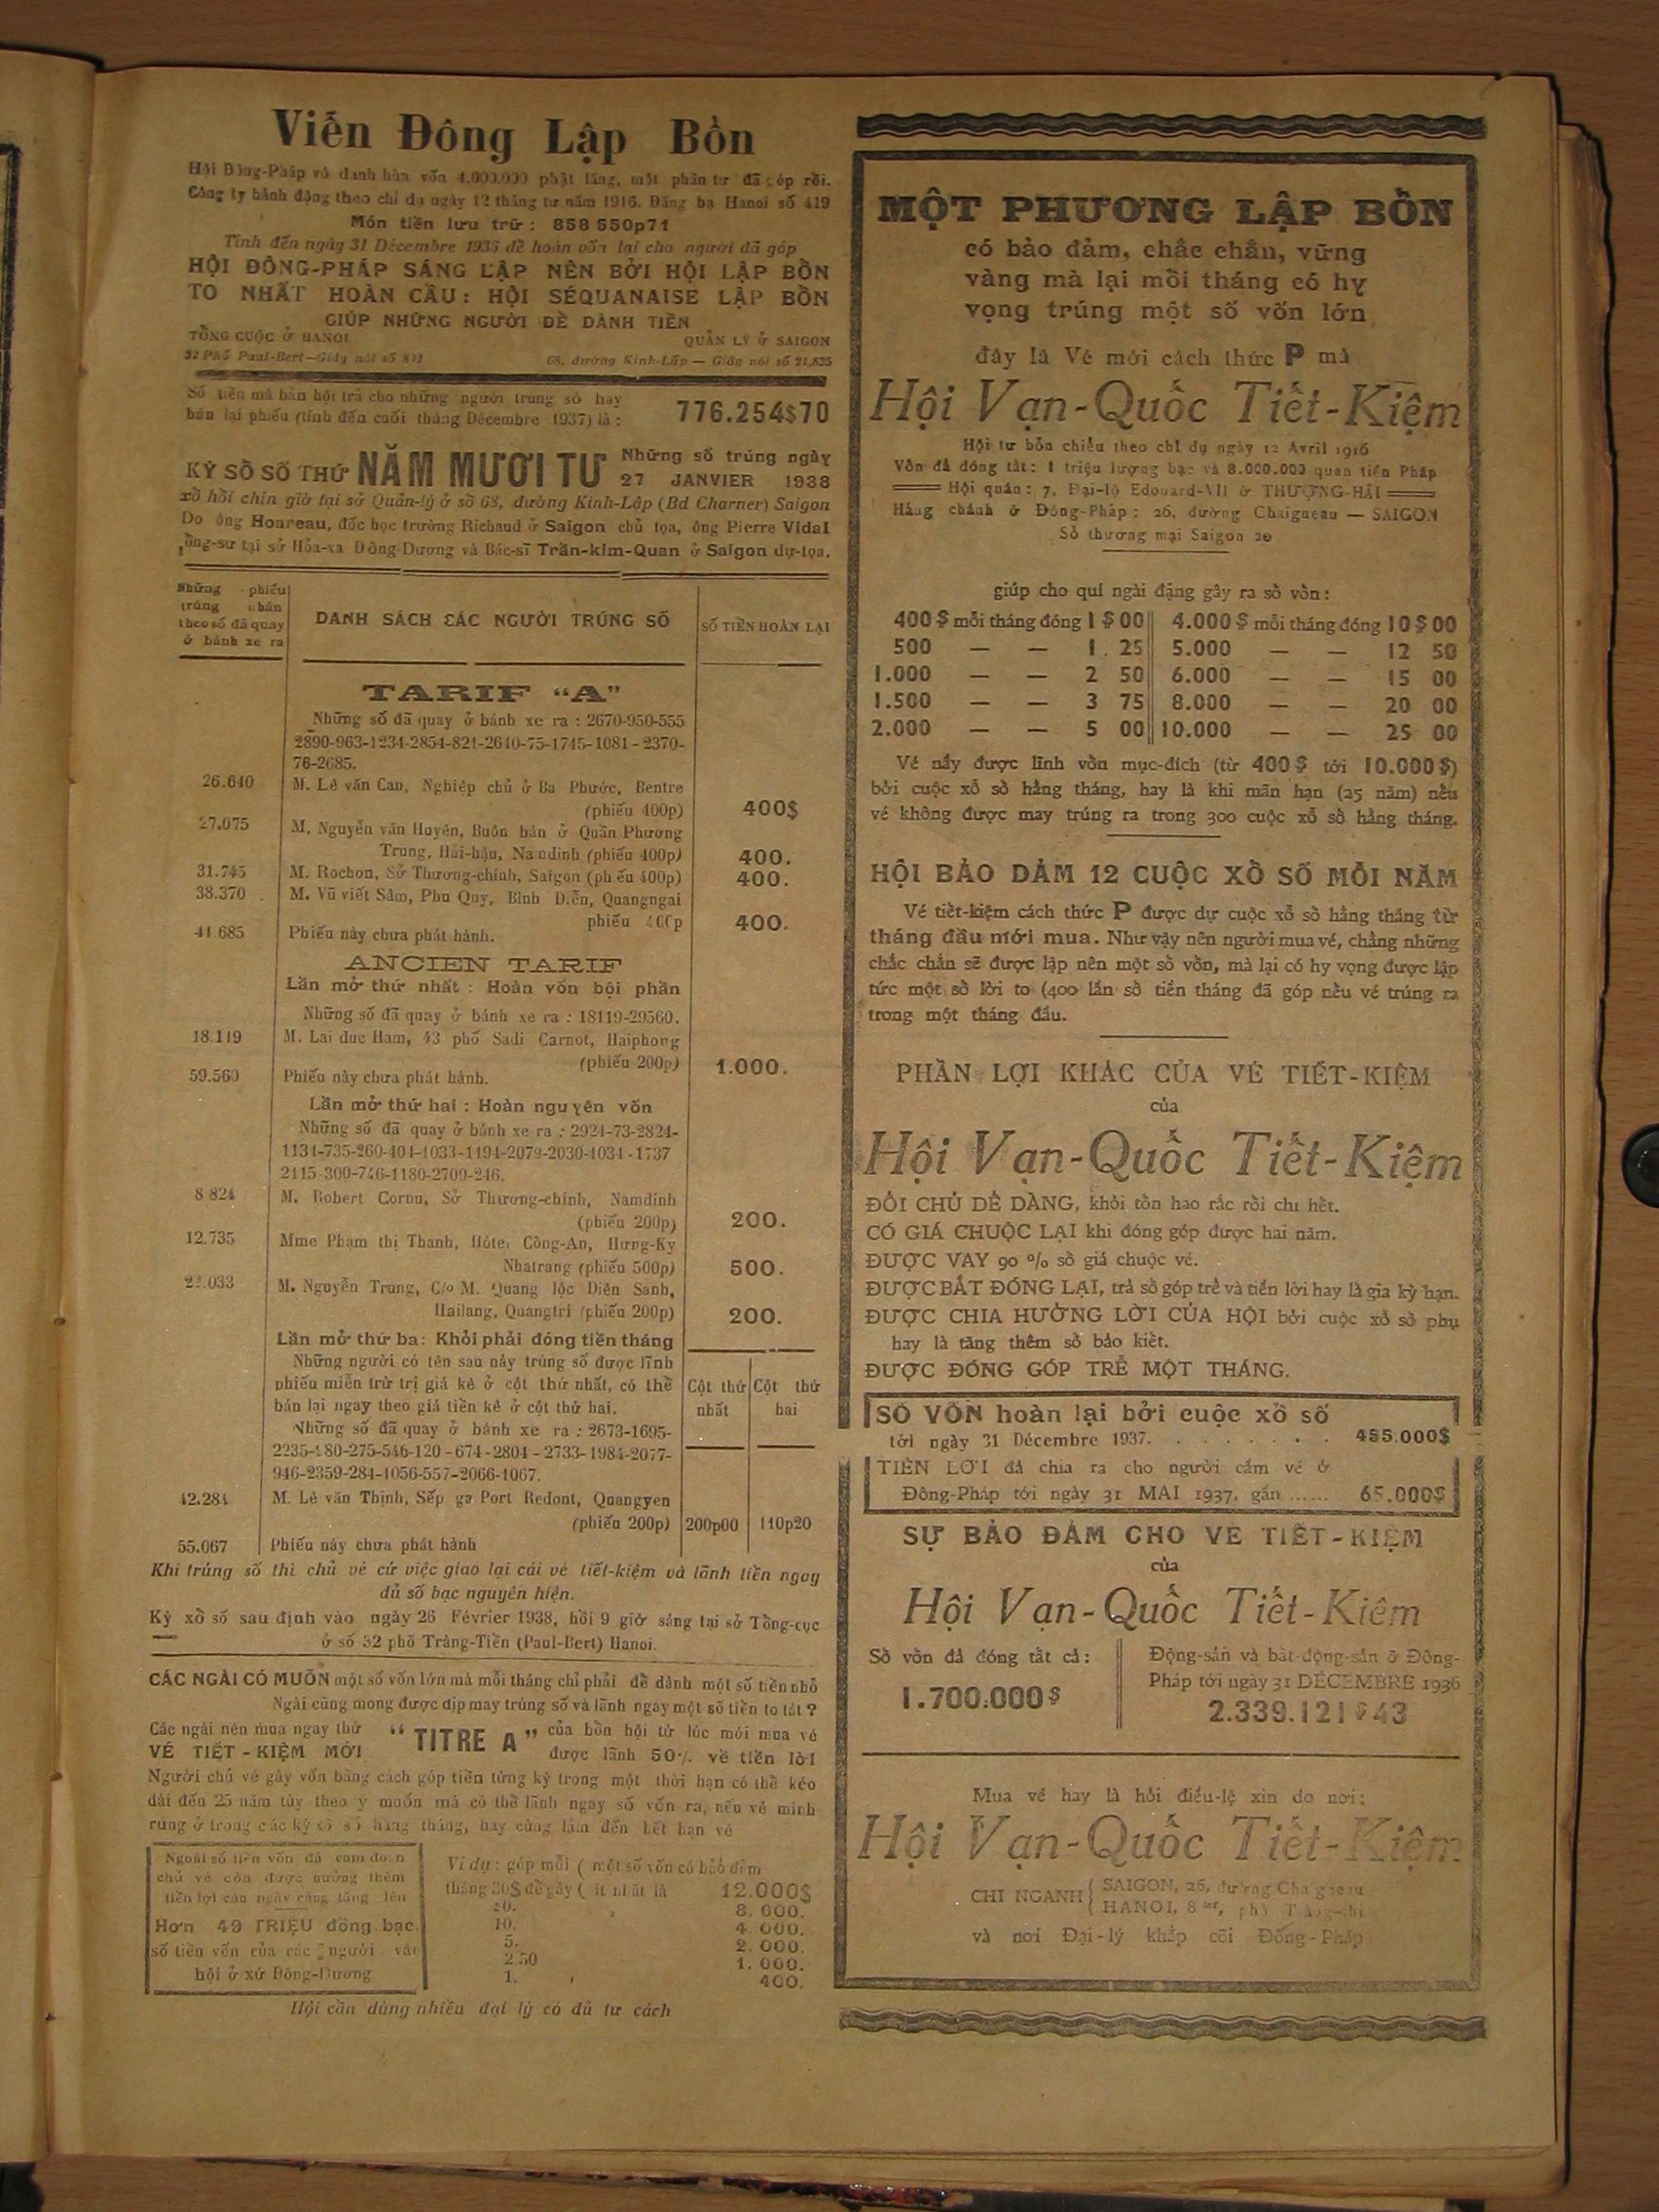 Viễn Đông Lập Bổn
Hội Đông-Pháp vô danh hùn vốn 4.000.000 phật lăng, một phần tư đã góp rồi.
Công ty hành động theo chỉ dụ ngày 12 tháng tư năm 1916. Đăng bạ Hanoi số 419
Món tiền lưu trữ : 858 550p71
Tính đến ngày 31 Décembre 1936 để hoàn vốn lại cho người đã góp
HỘI ĐÔNG-PHÁP SÁNG LẬP NÊN BỞI HỘI LẬP BỔN
TO NHẤT HOÀN CẦU : HỘI SÉQUANAISE LẬP BỔN
GIÚP NHỮNG NGƯỜI ĐỂ DÀNH TIỀN
TỔNG CUỘC Ở HANOI
32 Phố Paul-Bert—Giây nói số 892
QUẢN LÝ Ở SAIGON
68, đường Kinh-Lấp — Giây nói số 21.835
Số tiền mà bản hội trả cho những người trúng số hay
bán lại phiếu (tính đến cuối tháng Décembre 1937) là :
776.254$70
KỲ SỔ SỐ THỨ NĂM MƯƠI TƯ
Những số trúng ngày
27 JANVIER 1938
xổ hồi chín giờ tại sở Quản-lý ở số 68, đường Kinh-Lập (Bd Charner) Saigon
Do ông Hoareau, đốc học trường Richaud ở Saigon chủ tọa, ông Pierre Vidal
ông-sư tại sở Hỏa-xa Đông-Dương và Bác-sĩ Trần-kim-Quan ở Saigon dự-tọa.
Những phiếu
trúng nhân
theo số đã quay
ở bánh xe ra
DANH SÁCH CÁC NGƯỜI TRÚNG SỐ
SỐ TIỀN HOÀN LẠI
TARIF “A”
Những số đã quay ở bánh xe ra : 2670-950-555
2890-963-1234-2854-821-2640-75-1745-1081-2370-
76-2685.
26.640 M. Lê văn Can, Nghiệp chủ ở Ba Phước, Bentre
(phiếu 400p) 400$
27.075 M. Nguyễn văn Huyên, Buôn bán ở Quần Phương
Trung, Hải-hậu, Namdinh (phiếu 400p) 400.
31.745 M. Rochon, Sở Thương-chính, Saigon (phiếu 400p) 400.
38.370 M. Vũ viết Sâm, Phu Quy, Bình Diễn, Quangngai
phiếu 400p 400.
41.685 Phiếu này chưa phát hành.
ANCIEN TARIF
Lần mở thứ nhất : Hoàn vốn bội phần
Những số đã quay ở bánh xe ra : 18119-29560.
18.119 M. Lai duc Ham, 43 phố Sadi Carnot, Haiphong
(phiếu 200p) 1.000.
59.560 Phiếu này chưa phát hành.
Lần mở thứ hai : Hoàn nguyên vốn
Những số đã quay ở bánh xe ra : 2924-73-2824-
1134-735-260-404-1033-1194-2079-2030-1034-1737
2115-300-746-1180-2709-246.
8 824 M. Robert Cornu, Sở Thương-chính, Namdinh
(phiếu 200p) 200.
12.735 Mme Phạm thị Thanh, Hôtel Công-An, Hưng-Ky
Nhatrang (phiếu 500p) 500.
22.033 M. Nguyễn Trung, C/o M. Quang lộc Diên Sanh,
Hailang, Quangtri (phiếu 200p) 200.
Lần mở thứ ba : Khỏi phải đóng tiền tháng
Những người có tên sau này trúng số được lĩnh
phiếu miễn trừ trị giá kê ở cột thứ nhất, có thể
bán lại ngay theo giá tiền kê ở cột thứ hai.
Cột thứ nhất
Cột thứ hai
Những số đã quay ở bánh xe ra : 2673-1695-
2235-180-275-546-120-674-2804-2733-1984-2077-
946-2359-284-1056-557-2066-1067.
42.284 M. Lê văn Thịnh, Sếp ga Port Redont, Quangyen
(phiếu 200p) 200p00 110p20
55.067 Phiếu này chưa phát hành
Khi trúng số thì chủ vé cứ việc giao lại cái vé tiết-kiệm và lãnh tiền ngay
đủ số bạc nguyên hiện.
Kỳ xổ số sau định vào ngày 26 Février 1938, hồi 9 giờ sáng tại sở Tổng-cục
ở số 32 phố Tràng-Tiền (Paul-Bert) Hanoi.
CÁC NGÀI CÓ MUỐN một số vốn lớn mà mỗi tháng chỉ phải để dành một số tiền nhỏ
Ngài cũng mong được dịp may trúng số và lãnh ngay một số tiền to tát ?
Các ngài nên mua ngay thứ
VÉ TIẾT-KIỆM MỚI
“ TITRE A ”
của bổn hội từ lúc mới mua vé
được lãnh 50% về tiền lời
Người chủ vé gây vốn bằng cách góp tiền từng kỳ trong một thời hạn có thể kéo
dài đến 25 năm tùy theo ý muốn mà có thể lãnh ngay số vốn ra, nếu vé mình
rúng ở trong các kỳ xổ số hàng tháng, hay cùng lắm đến hết hạn vé
Ngoài số tiền vốn đã cam đoan
chủ vé còn được hưởng thêm
tiền lợi cán ngày càng tăng lên
Hơn 49 TRIỆU đồng bạc
số tiền vốn của các người vào
hội ở xứ Đông-Dương
Ví dụ : góp mỗi ( một số vốn có bảo đảm
tháng 30$ để gây ( ít nhất là 12.000$
20. 8. 000.
10. 4. 000.
5. 2. 000.
2.50 1. 000.
1. 400.
Hội cần dùng nhiều đại lý có đủ tư cách
MỘT PHƯƠNG LẬP BỔN
có bảo đảm, chắc chắn, vững
vàng mà lại mỗi tháng có hy
vọng trúng một số vốn lớn
đây là Vé mới cách thức P mà
Hội Vạn-Quốc Tiết-Kiệm
Hội tư bổn chiếu theo chỉ dụ ngày 12 Avril 1916
Vốn đã đóng tất : 1 triệu lượng bạc và 8.000.000 quan tiền Pháp
Hội quán : 7, Đại-lộ Edouard-VII ở THƯỢNG-HẢI
Hảng chánh ở Đông-Pháp : 26, đường Chaigneau — SAIGON
Số thương mại Saigon 20
giúp cho quí ngài đặng gây ra số vốn :
400 $ mỗi tháng đóng 1 $ 00 4.000 $ mỗi tháng đóng 10 $ 00
500 — — 1. 25 5.000 — — 12 50
1.000 — — 2 50 6.000 — — 15 00
1.500 — — 3 75 8.000 — — 20 00
2.000 — — 5 00 10.000 — — 25 00
Vé nầy được lĩnh vốn mục-đích (từ 400$ tới 10.000$)
bởi cuộc xổ số hằng tháng, hay là khi mãn hạn (25 năm) nếu
vé không được may trúng ra trong 300 cuộc xổ số hằng tháng.
HỘI BẢO ĐẢM 12 CUỘC XỔ SỐ MỖI NĂM
Vé tiết-kiệm cách thức P được dự cuộc xổ số hằng tháng từ
tháng đầu mới mua. Như vậy nên người mua vé, chẳng những
chắc chắn sẽ được lập nên một số vốn, mà lại có hy vọng được lập
tức một số lời to (400 lần số tiền tháng đã góp nếu vé trúng ra
trong một tháng đầu.
PHẦN LỢI KHÁC CỦA VÉ TIẾT-KIỆM
của
Hội Vạn-Quốc Tiết-Kiệm
ĐỔI CHỦ DỄ DÀNG, khỏi tốn hao rắc rối chi hết.
CÓ GIÁ CHUỘC LẠI khi đóng góp được hai năm.
ĐƯỢC VAY 90 % số giá chuộc vé.
ĐƯỢC BẮT ĐÓNG LẠI, trả số góp trể và tiền lời hay là gia kỳ hạn.
ĐƯỢC CHIA HƯỞNG LỜI CỦA HỘI bởi cuộc xổ số phụ
hay là tăng thêm số bảo kiết.
ĐƯỢC ĐÓNG GÓP TRỄ MỘT THÁNG.
SỐ VỐN hoàn lại bởi cuộc xổ số
tới ngày 31 Décembre 1937. . . . . . . 485.000$
TIỀN LỜI đã chia ra cho người cầm vé ở
Đông-Pháp tới ngày 31 MAI 1937, gần ...... 65.000$
SỰ BẢO ĐẢM CHO VÉ TIẾT-KIỆM
của
Hội Vạn-Quốc Tiết-Kiệm
Số vốn đã đóng tất cả :
1.700.000$
Động-sản và bất-động-sản ở Đông-
Pháp tới ngày 31 DÉCEMBRE 1936
2.339.121$43
Mua vé hay là hỏi điều-lệ xin do nơi :
Hội Vạn-Quốc Tiết-Kiệm
CHI NGANH { SAIGON, 26, đường Chaigneau
HANOI, 8 ter, phố Tràng-thi
và nơi Đại-lý khắp cõi Đông-Pháp